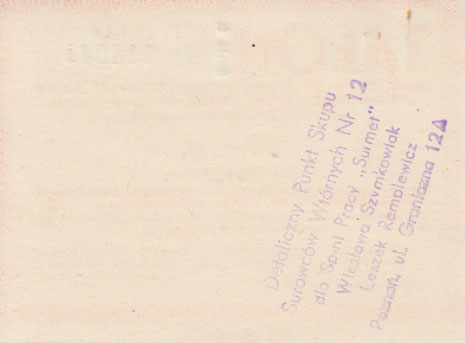 Detaliczny Punkt Skupu
Surowców Wtórnych Nr 12
dla Spni Pracy „Surmet"
Wiesława Szymkowiak
Leszek Remplewicz
Poznań, ul. Graniczna 12A